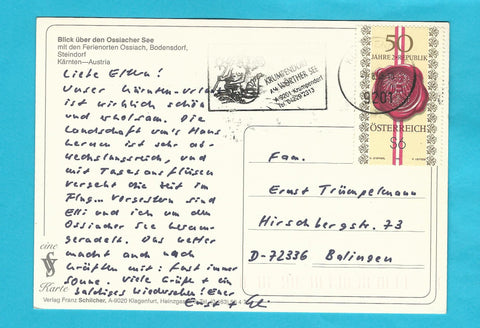 Blick über den Ossiacher See
mit den Ferienorten Ossiach, Bodensdorf,
Steindorf
Kärnten—Austria
Liebe Eltern!
Unser Kärnten-Urlaub
ist wirklich schön
und erholsam. Die
Landschaft um's Haus
herum ist sehr ab-
wechslungsreich, und
mit Tagesausflügen
vergeht die Zeit im
Flug... Vorgestern sind
Elli und ich um den
Ossiacher See herum-
geradelt. Das Wetter
macht auch nach
Kräften mit: fast immer
Sonne. Viele Grüße + ein
baldiges Wiedersehen! Euer
Ernst + Elli
eine
Karte
Verlag Franz Schilcher, A-9020 Klagenfurt
KRUMPENDORF
AM WÖRTHER SEE
A-9201 Krumpendorf
Tel. 04229/2313
9201
50
JAHRE 2. REPUBLIK
ÖSTERREICH
S6
Fam.
Ernst Trümpelmann
Hirschbergstr. 73
D-72336 Balingen